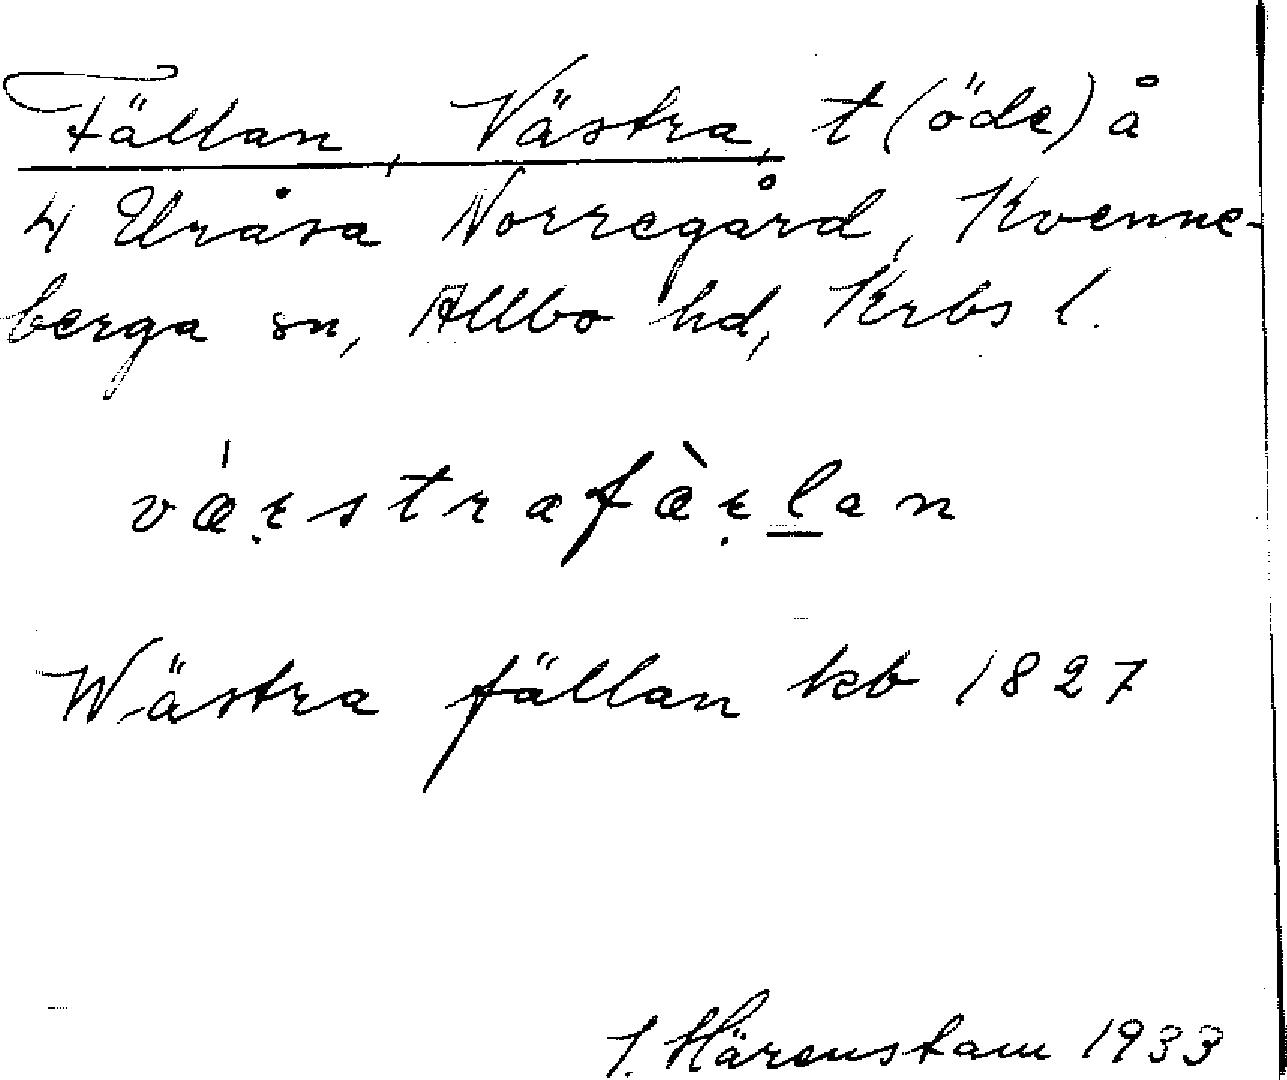 Fällan, Västra, t (öde) å
4 Uråsa Norregård, Kvenne-
berga sn, Allbo hd, Krbs l.
vǽɛ̣strafæ̀ɛ̣l̲an
Wästra fällan kb 1827
J. Härenstam 1933